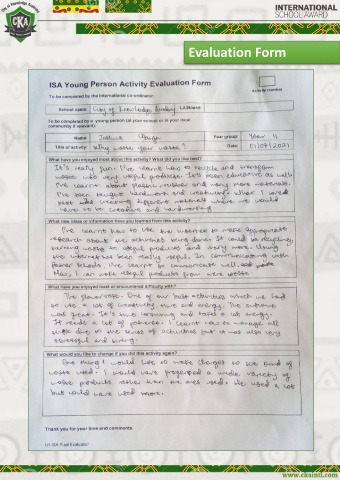 City of Knowledge Academy
CKA
INTERNATIONAL
SCHOOL AWARD
Evaluation Form
ISA Young Person Activity Evaluation Form
To be completed by the international co-ordinator:
Activity number
School name City of Knowledge Academy LA/Board
To be completed by a young person (at your school or in your local
community if relevant):
Name Year group Year 11
Title of activity Why waste your waste? Date
What have you enjoyed most about this activity? What did you like best?
It's really fun. I've learnt how to recycle and transform
waste into very useful products. It's been educative as well.
I've learnt about plastic, rubber and many more materials.
I've been taught hardwork and creativity. What I loved
most was creating different materials where we would
have to be creative and hardworking
What new ideas or information have you learned from this activity?
I've learnt how to use the internet to make appropriate
research about the activities being done. It could be recycling,
turning waste to useful products and many more. Using
the internet has been really useful in communicating with
schools. I've learnt to communicate well
I can make useful products from mere waste.
What have you enjoyed least or encountered difficulty with?
The flower vase. One of our best activities which we had
to use a lot of creativity, time and energy. The outcome
was great. It's time consuming and takes a lot energy.
It needs a lot of patience. I learnt how to manage all
due to the series of activities but it was also very
stressful and tiring.
What would you like to change if you did this activity again?
One thing I would like to make changes to is kind of
waste used. I would have preferred a wide variety of
waste products rather than the ones used. We used a lot
but could have used more.
Thank you for your time and comments.
U1-ISA Pupil Evaluation
www.ckaintl.com